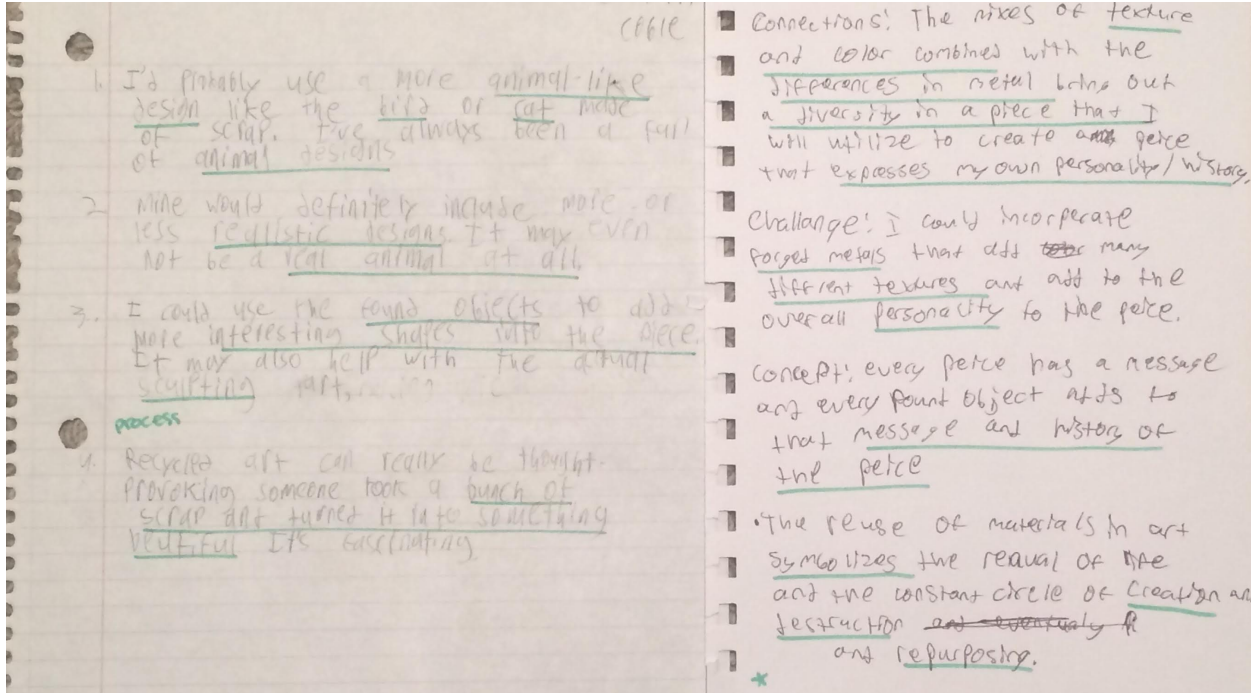 Coble
1. I'd probably use a more animal-like
design like the bird or cat made
of scrap. I've always been a fan
of animal designs
2 Mine would definitely include more or
less realistic designs. It may even
not be a real animal at all.
3. I could use the found objects to add
more interesting shapes into the piece.
It may also help with the actual
sculpting part
process
4. Recycled art can really be thought-
provoking someone took a bunch of
scrap and turned it into something
It's fascinating
Connections: The mixes of texture
and color combined with the
differences in metal bring out
a diversity in a piece that I
will utilize to create a peice
that expresses my own personality/history.
Challange: I could incorperate
forged metals that add many
different textures and add to the
overall personality to the peice.
Concept: every peice has a message
and every found object adds to
that message and history of
the peice
• The reuse of materials in art
symbolizes the reaual of life
and the constant circle of Creation an
destruction and eventualy
and repurposing.